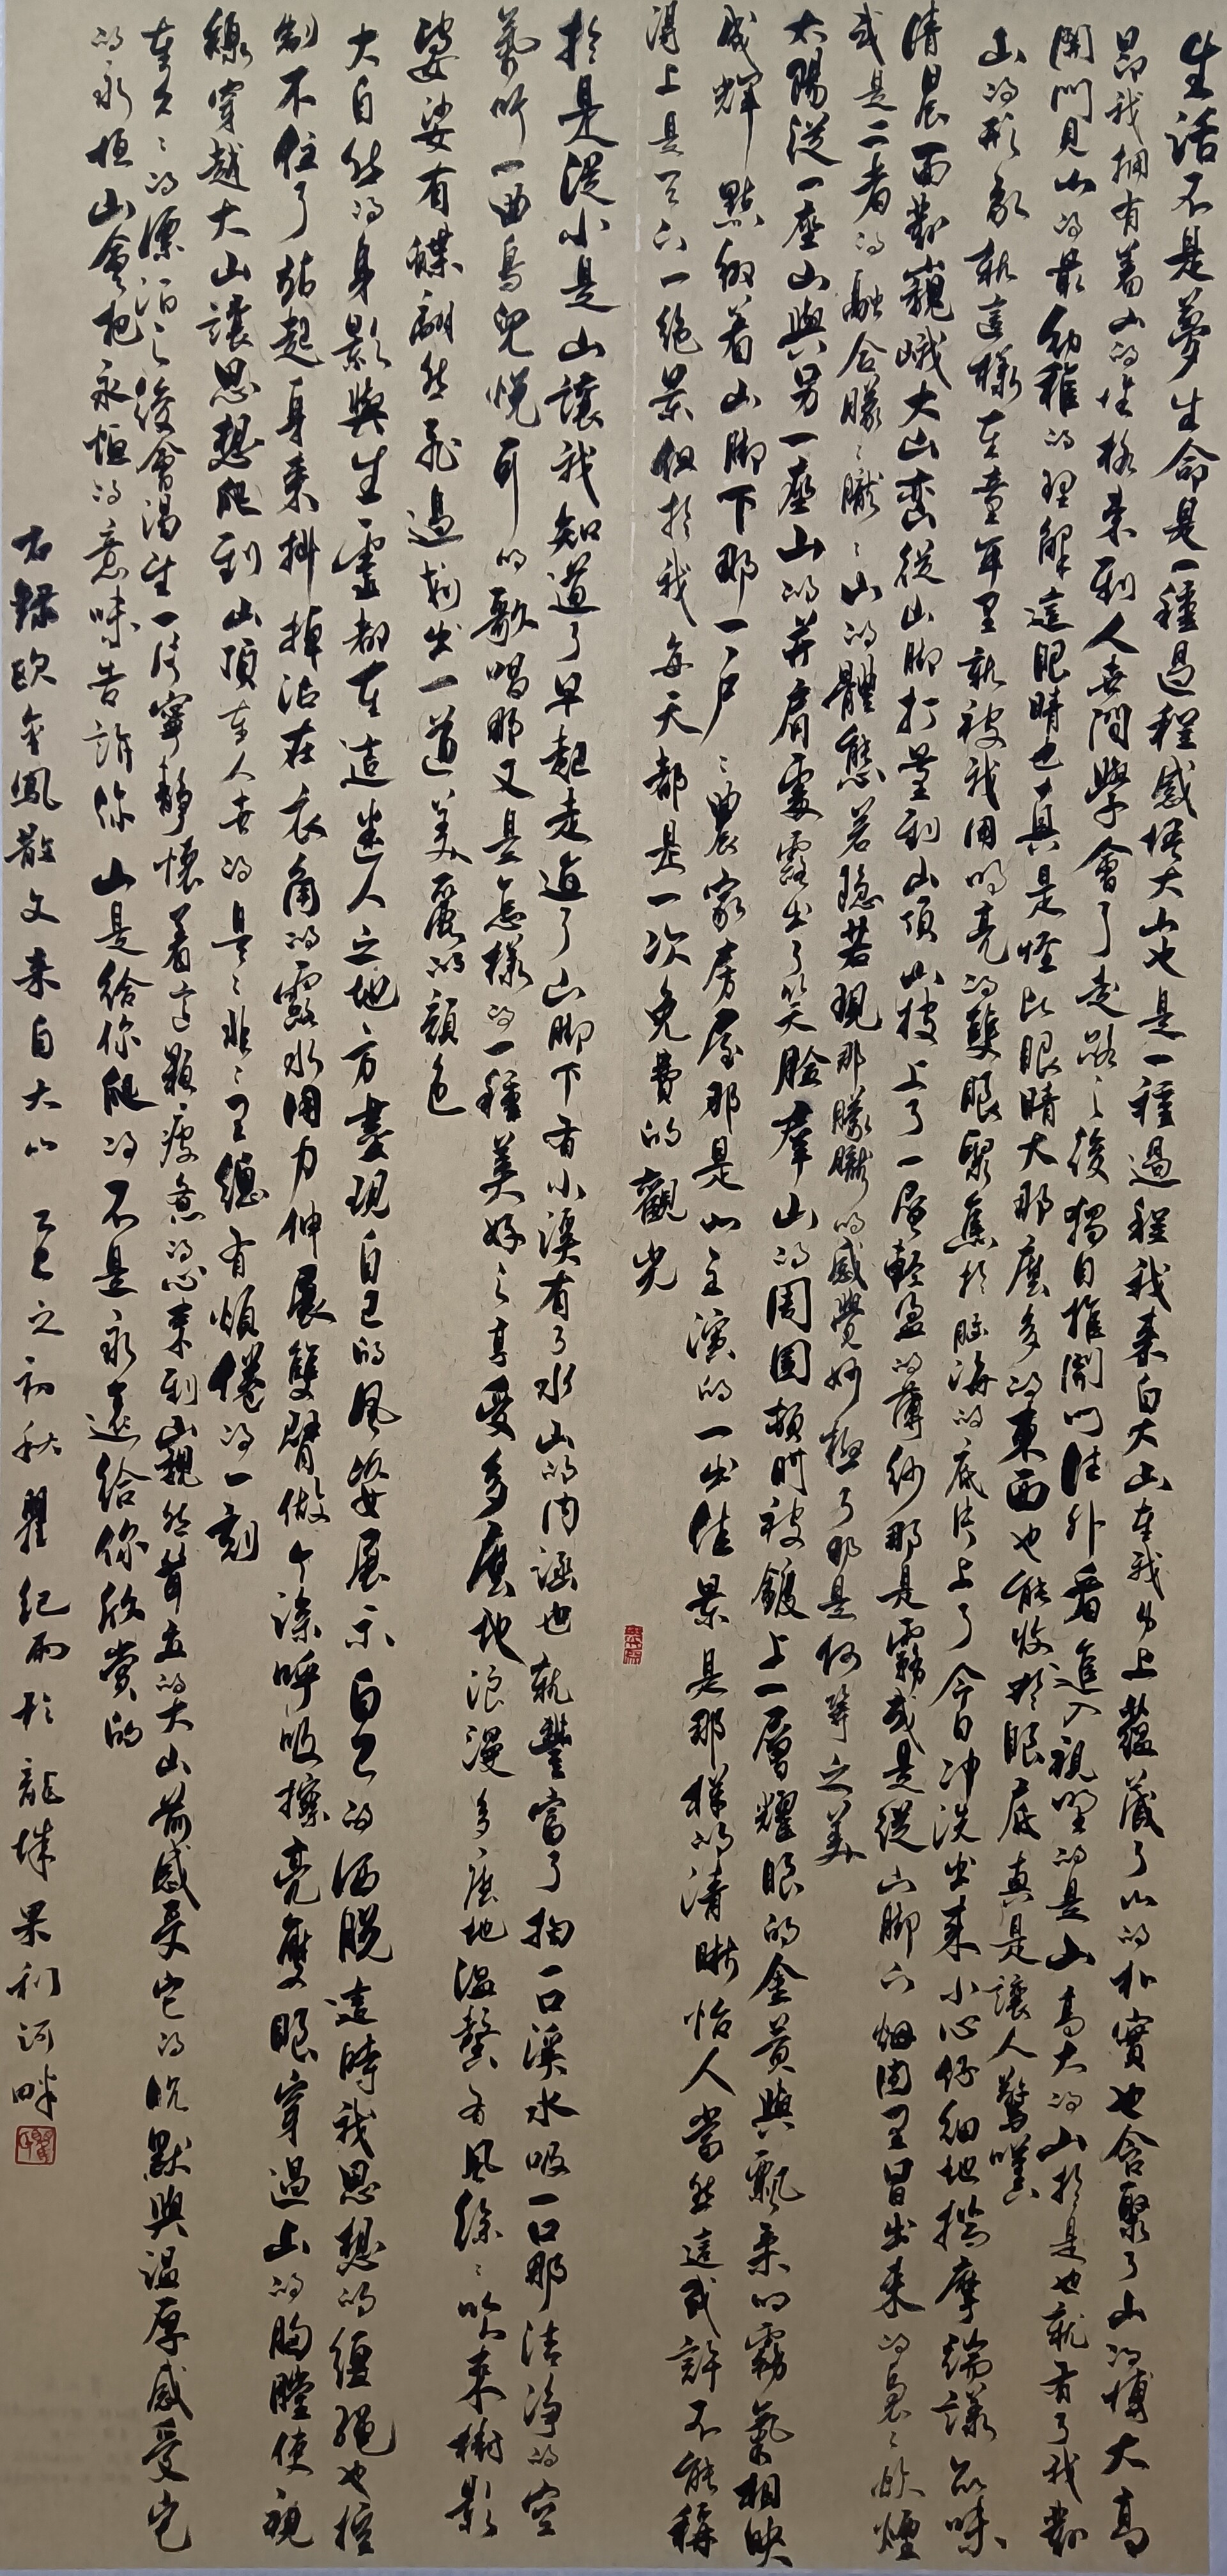 生活不是夢生命是一種過程感悟大山也是一種過程我來自大山在我身上蘊藏了山的朴實也含聚了山的博大高
昂我擁有着山的性格來到人世間學會了走路之後獨自推開門往外看進入視野的是山高大的山於是也就有了我對
開門見山的最幼稚的理解這眼睛也真是怪比眼睛大那麼多的東西也能收於眼底真是讓人驚嘆
山的形象就這樣在童年里就被我用明亮的雙眼聚焦於腦海的底片上了今日冲洗出來小心仔細地揣摩端詳品味
清晨面對巍峨大山巒從山脚打量到山頂山披上了一層輕盈的薄紗那是霧或是從山脚下烟囱里冒出來的裊裊炊煙
或是二者的融合朦朦朧朧山的體態若隐若現那朦朧的感覺妙極了那是何等之美
太陽從一座山與另一座山的并肩處露出了笑臉羣山的周圍頓時被鍍上一層耀眼的金黄與飄柔的霧氣相映
成輝點綴着山脚下那一户户農家房屋那是山主演的一出佳景是那樣的清晰怡人當然這或許不能稱
得上是天下一絶景但於我每天都是一次免費的觀光
於是從小是山讓我知道了早起走近了山脚下有小溪有了水山的内涵也就豐富了掬一口溪水吸一口那清净的空
氣听一曲鳥兒悦耳的歌唱那又是怎樣的一種美好之享受多麼地浪漫多麼地温馨有風徐徐吹來樹影
婆娑有蝶翩然飛過划出一道美麗的顔色
大自然的身影與生靈都在這迷人之地方盡現自己的風姿展示自己的洒脱這時我思想的繮繩也控
制不住了站起身來抖掉沾在衣角的露水用力伸展雙臂做个深呼吸擦亮雙眼穿過山的胸膛使視
線穿越大山讓思想爬到山頂在人世的是是非非里總有煩倦的一刻
在久久的漂泊之後會渴望一片寧静懷着這顆疲惫的心來到巍然聳立的大山前感受它的沉默與温厚感受它
的永恒山會把永恒的意味告訴你山是給你爬的不是永遠給你欣赏的
右録歐金鳳散文來自大山 乙巳之初秋瞿紀雨於龍城果利河畔